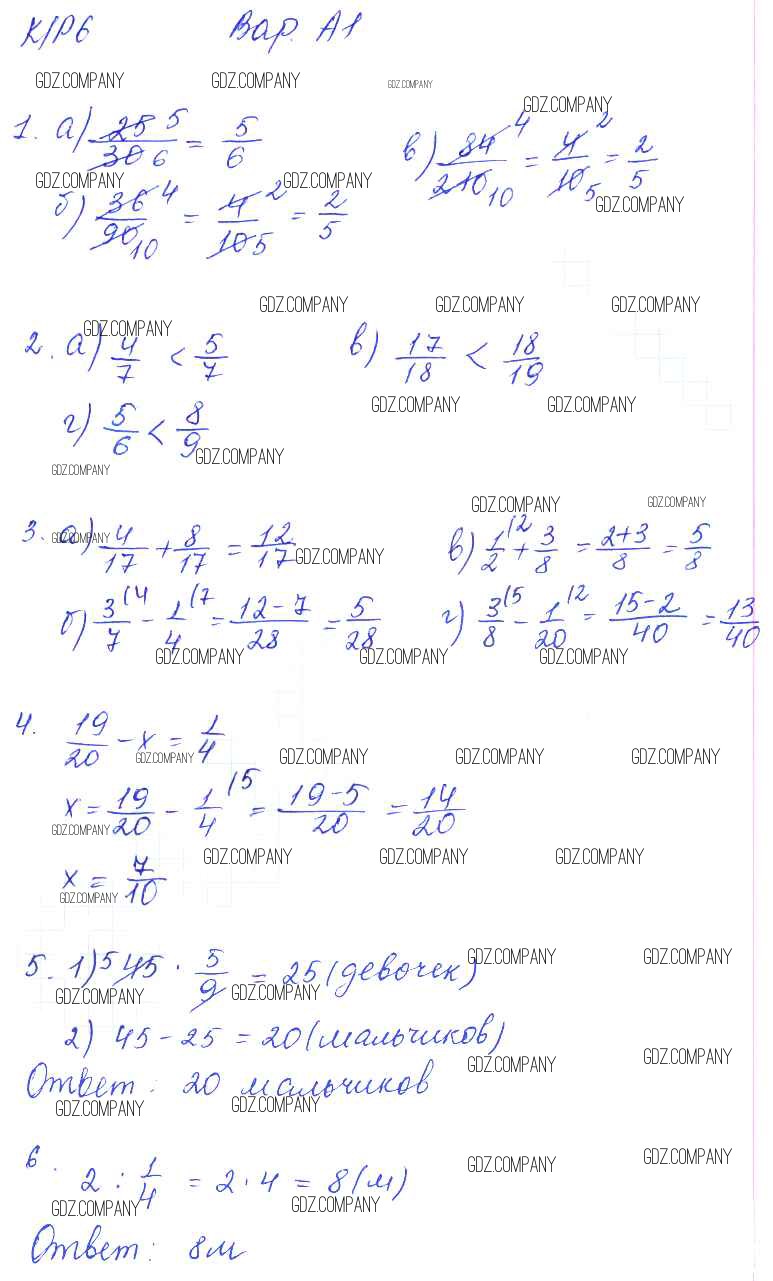 К/Р6 Вар. А1
GDZ.COMPANY GDZ.COMPANY GDZ.COMPANY
GDZ.COMPANY
1. а) 25 5/30 6 = 5/6 в) 84 4/210 10 = 4 2/10 5 = 2/5
GDZ.COMPANY GDZ.COMPANY GDZ.COMPANY
б) 36 4/90 10 = 4 2/10 5 = 2/5
GDZ.COMPANY GDZ.COMPANY GDZ.COMPANY
GDZ.COMPANY
2. а) 4/7 < 5/7 в) 17/18 < 18/19
GDZ.COMPANY GDZ.COMPANY
г) 5/6 < 8/9
GDZ.COMPANY
GDZ.COMPANY
GDZ.COMPANY GDZ.COMPANY
3. а) 4/17 + 8/17 = 12/17 в) 1/2 (2 + 3/8 = 2+3/8 = 5/8
GDZ.COMPANY GDZ.COMPANY
б) 3/7 (4 - 1/4 (7 = 12-7/28 = 5/28 г) 3/8 (5 - 1/20 (2 = 15-2/40 = 13/40
GDZ.COMPANY GDZ.COMPANY GDZ.COMPANY
4. 19/20 - x = 1/4
GDZ.COMPANY GDZ.COMPANY GDZ.COMPANY GDZ.COMPANY
x = 19/20 - 1/4 (5 = 19-5/20 = 14/20
GDZ.COMPANY
GDZ.COMPANY GDZ.COMPANY GDZ.COMPANY
x = 7/10
GDZ.COMPANY
5. 1) 5 45 · 5/9 = 25 (девочек)
GDZ.COMPANY GDZ.COMPANY
GDZ.COMPANY GDZ.COMPANY
2) 45 - 25 = 20 (мальчиков)
GDZ.COMPANY GDZ.COMPANY
Ответ: 20 мальчиков
GDZ.COMPANY GDZ.COMPANY
6.
GDZ.COMPANY GDZ.COMPANY
2 : 1/4 = 2 · 4 = 8 (м)
GDZ.COMPANY GDZ.COMPANY
Ответ: 8м